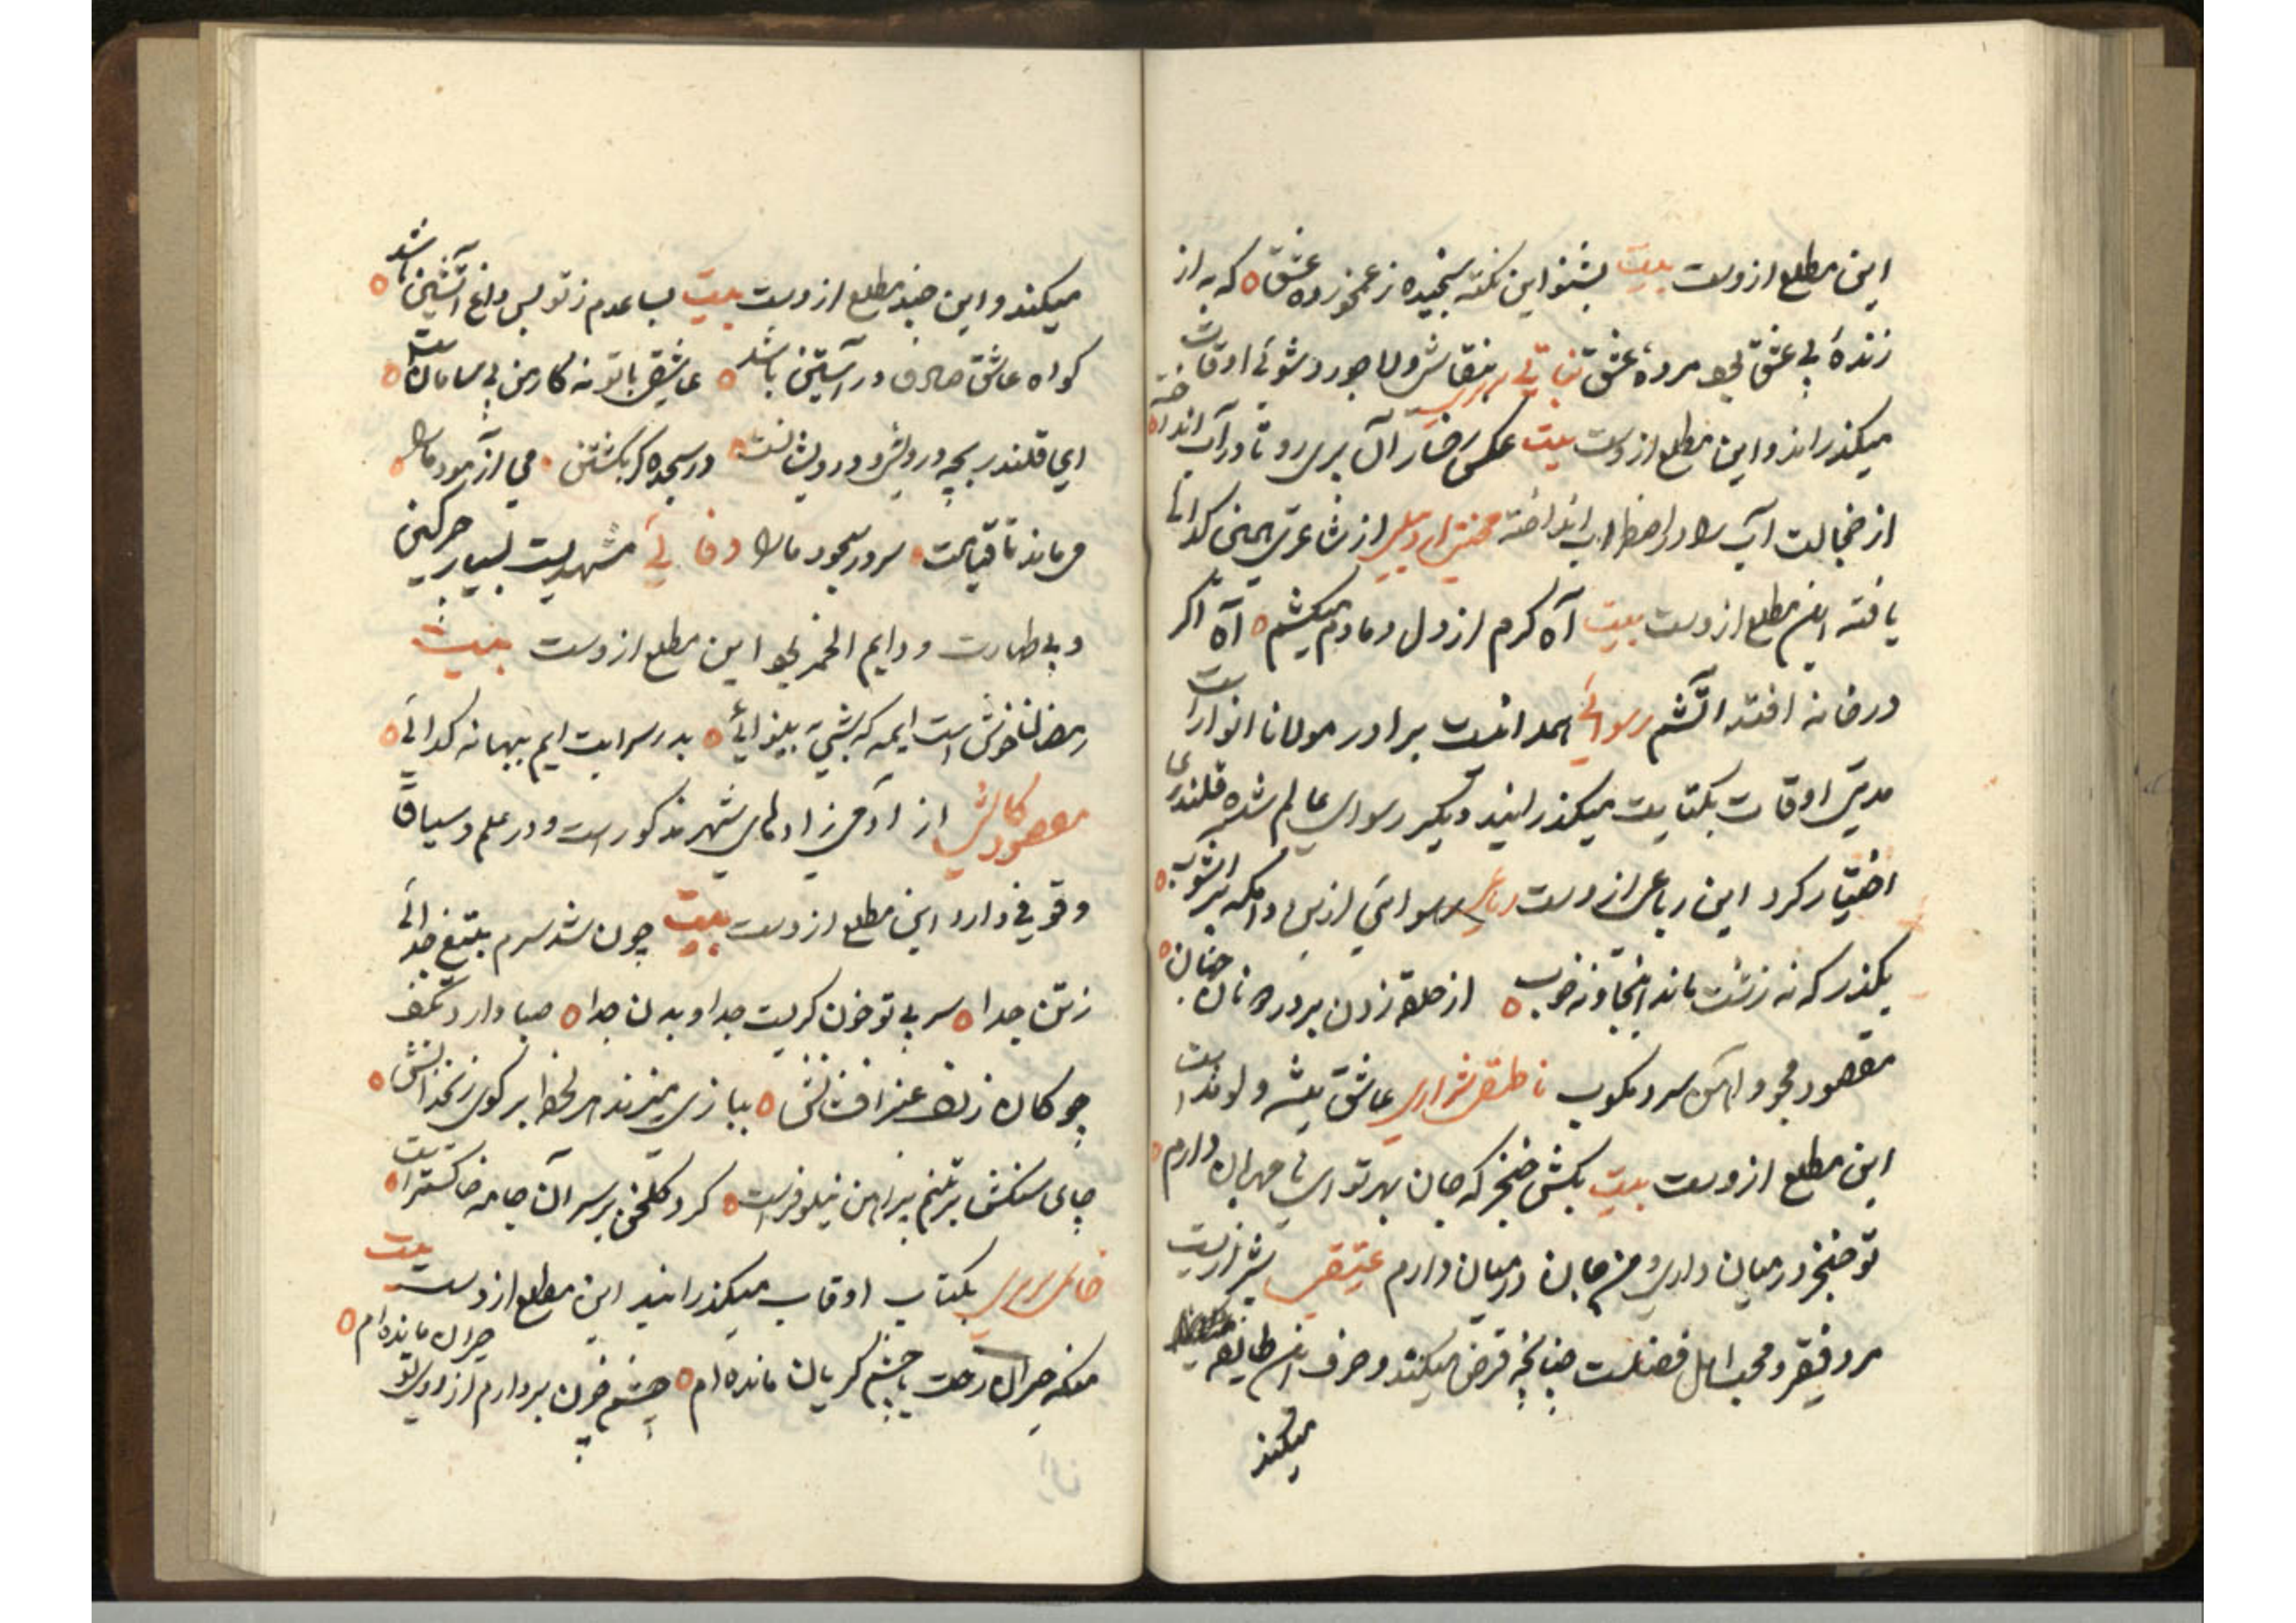 این مطلع ازوست بیت بشنو این نکته سنجیده ز غمخورده عشق ه که به از
زندهٔ بی عشق بود مردهٔ عشق نباتی تبریزی بنقاشی و لاجوردشوئی اوقات
میکذراند و این مطلع ازوست بیت عکس رخسار آن پری رو تا در آب انداخته ه
از خجالت آب را در اضطراب انداخته محنتی اردبیلی از شاعری همین کدائی
یافته این مطلع ازوست بیت آه کرم از دل دمادم میکشم ه آه اکر
در خانه افتد آتشم رسوائی همدانیست برادر مولانا انوار است
مدتی اوقات بکتابت میکذرانید دیکر رسوای عالم شده قلندری
اختیار کرد این رباعی ازوست رباعی رسوائی ازین دامکه پر آشوب ه
بکذر که نه زشت ماند اینجا و نه خوب ه از حلقه زدن بر در دونان جهان ه
مقصود مجو و آهن سرد مکوب ناطقی شراری عاشق پیشه و لوند است
این مطلع ازوست بیت بکش خنجر که جان بهر تو ای نامهربان دارم ه
تو خنجر در میان داری و من جان در میان دارم عتیقی شیرازیست
مرد فقیر و محب اهل فضلست چنانچه قرض میکند و صرف این طایفه
میکند
میکند و این چند مطلع ازوست بیت بساعدم ز تو بس داغ آتشین باشد ه
کواه عاشق صادق در آستین باشد ه عاشقی با تو نه کار من بی سامانست ه
ای قلندر بچه درویشی و درویشانست ه در سجده کر بکشتن ه می آزمود ما را ه
می ماند تا قیامت ه سر در سجود ما را وفائی مشهدیست بسیار چرکین
و بی طهارت و دایم الخمر بود این مطلع ازوست بیت
رمضان خوش است ایمه که بشب بینوائی ه بدر سرایت ایم ببهانه کدائی ه
مقصود کاشی از آدمی زادهای شهر مذکور است و در علم و سیاق
وقوفی دارد این مطلع ازوست بیت چون شد سرم بتیغ جدائی
ز تن جدا ه سر بی تو خون کریست جدا و بدن جدا ه صبا دارد بکف
چوکان زلف عنبر افشانش ه ببازی میزند هر لحظه بر کوی زنخدانش ه
جای سنکش بر تنم پیراهن نیلوفرست ه کرد کلخن بر سر آن جامه خاکستر است ه
بکتابت اوقات میکذرانید این مطلع ازوست بیت
منکه حیران رخت با چشم کریان مانده ام ه چشم خون بر دارم از روی تو حیران مانده ام ه